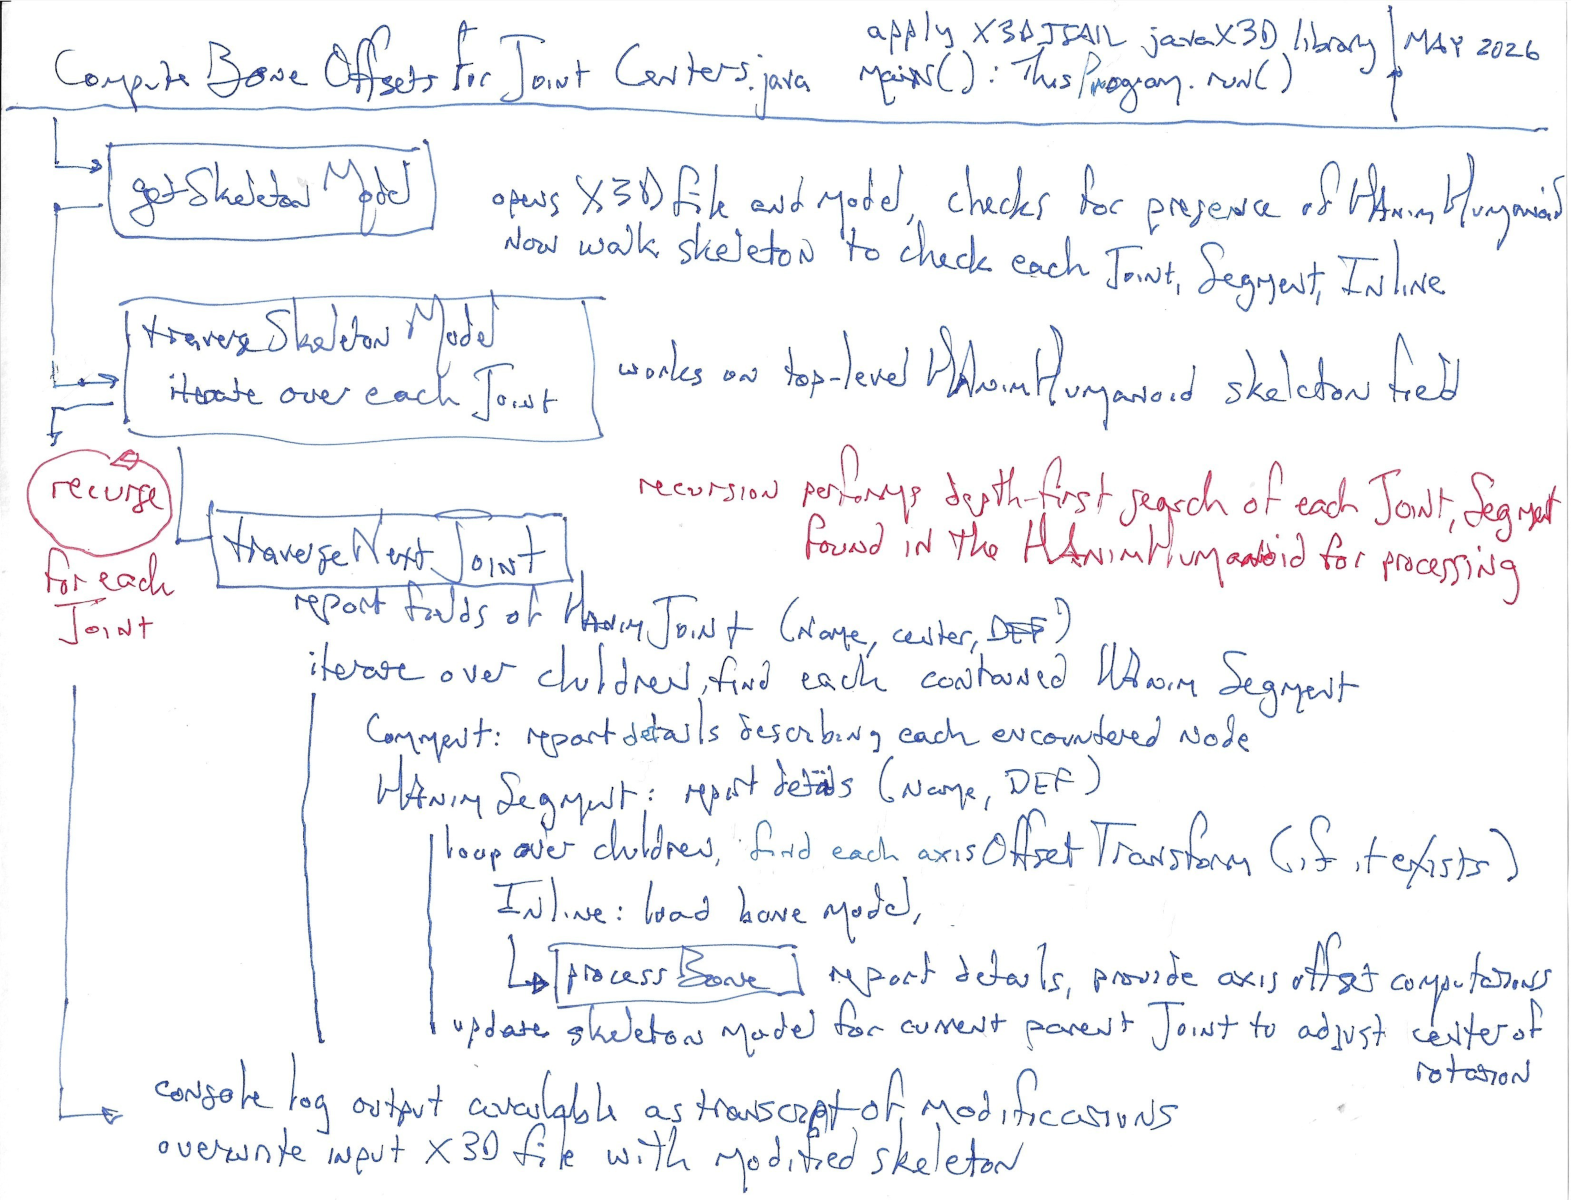 Compute Bone Offsets For Joint Centers.java
apply X3DJSAIL java X3D library
main(): ThisProgram.run()
MAY 2026
getSkeleton Model
opens X3D file and model, checks for presence of HAnimHumanoid
Now walk skeleton to check each Joint, Segment, Inline
traverseSkeleton Model
iterate over each Joint
works on top-level HAnimHumanoid skeleton field
recurse
for each
Joint
recursion performs depth-first search of each Joint, Segment
found in the HAnimHumanoid for processing
traverseNext Joint
report fields of HAnimJoint (Name, center, DEF)
iterate over children, find each contained HAnim Segment
Comment: report details describing each encountered node
HAnim Segment: report details (Name, DEF)
loop over children, find each axisOffset Transform (if it exists)
Inline: load bone model,
processBone
report details, provide axis offset computations
update skeleton model for current parent Joint to adjust center of
rotation
console log output available as transcript of modifications
overwrite input X3D file with modified skeleton